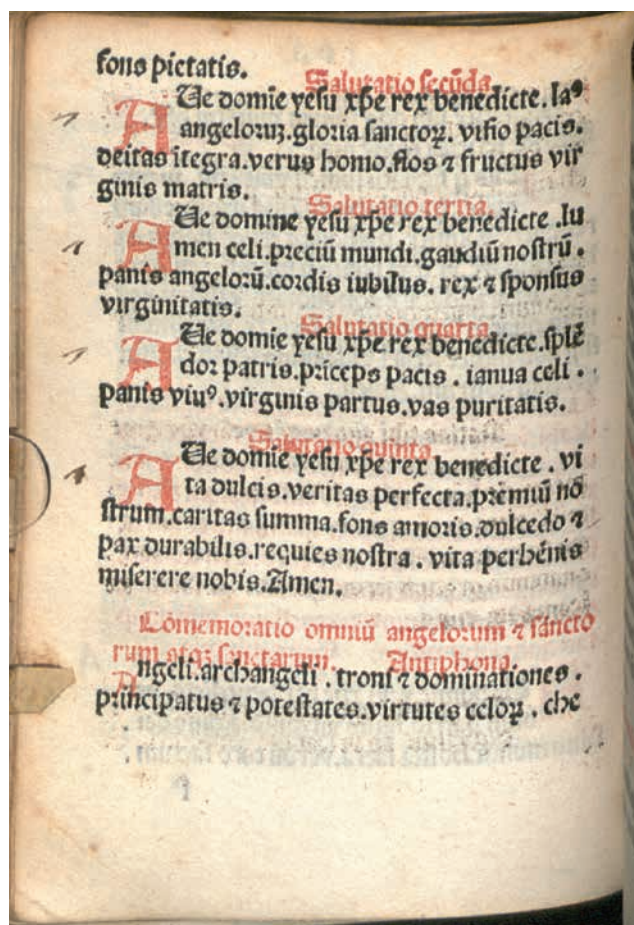 fons pietatis.
Salutatio secūda
AUe domīe yesu xp̄e rex benedicte. laꝰ
angeloruʒ. gloria sanctoꝝ. visio pacis.
deitas ītegra. verus homo. flos ⁊ fructus vir
ginis matris.
Salutatio tertia.
AUe domine yesu xp̄e rex benedicte. lu
men celi. preciū mundi. gaudiū nostrū.
panis angelorū. cordis iubilus. rex ⁊ sponsus
virginitatis.
Salutatio quarta
AUe domīe yesu xp̄e rex benedicte. splē
dor patris. prīceps pacis. ianua celi.
panis viuꝰ. virginis partus. vas puritatis.
Salutatio quinta
AUe domīe yesu xp̄e rex benedicte. vi
ta dulcis. veritas perfecta. premiū no
strum. caritas summa. fons amoris. dulcedo ⁊
pax durabilis. requies nostra. vita perhēnis
miserere nobis. Amen.
Cōmemoratio omniū angelorum ⁊ sancto
rum atqꝫ sanctarum. Antiphona.
Angeli. archangeli. troni ⁊ dominationes.
principatus ⁊ potestates. virtutes celoꝝ. che